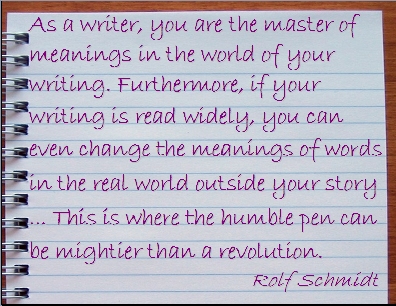 As a writer, you are the master of
meanings in the world of your
writing. Furthermore, if your
writing is read widely, you can
even change the meanings of words
in the real world outside your story
... This is where the humble pen can
be mightier than a revolution.
Rolf Schmidt